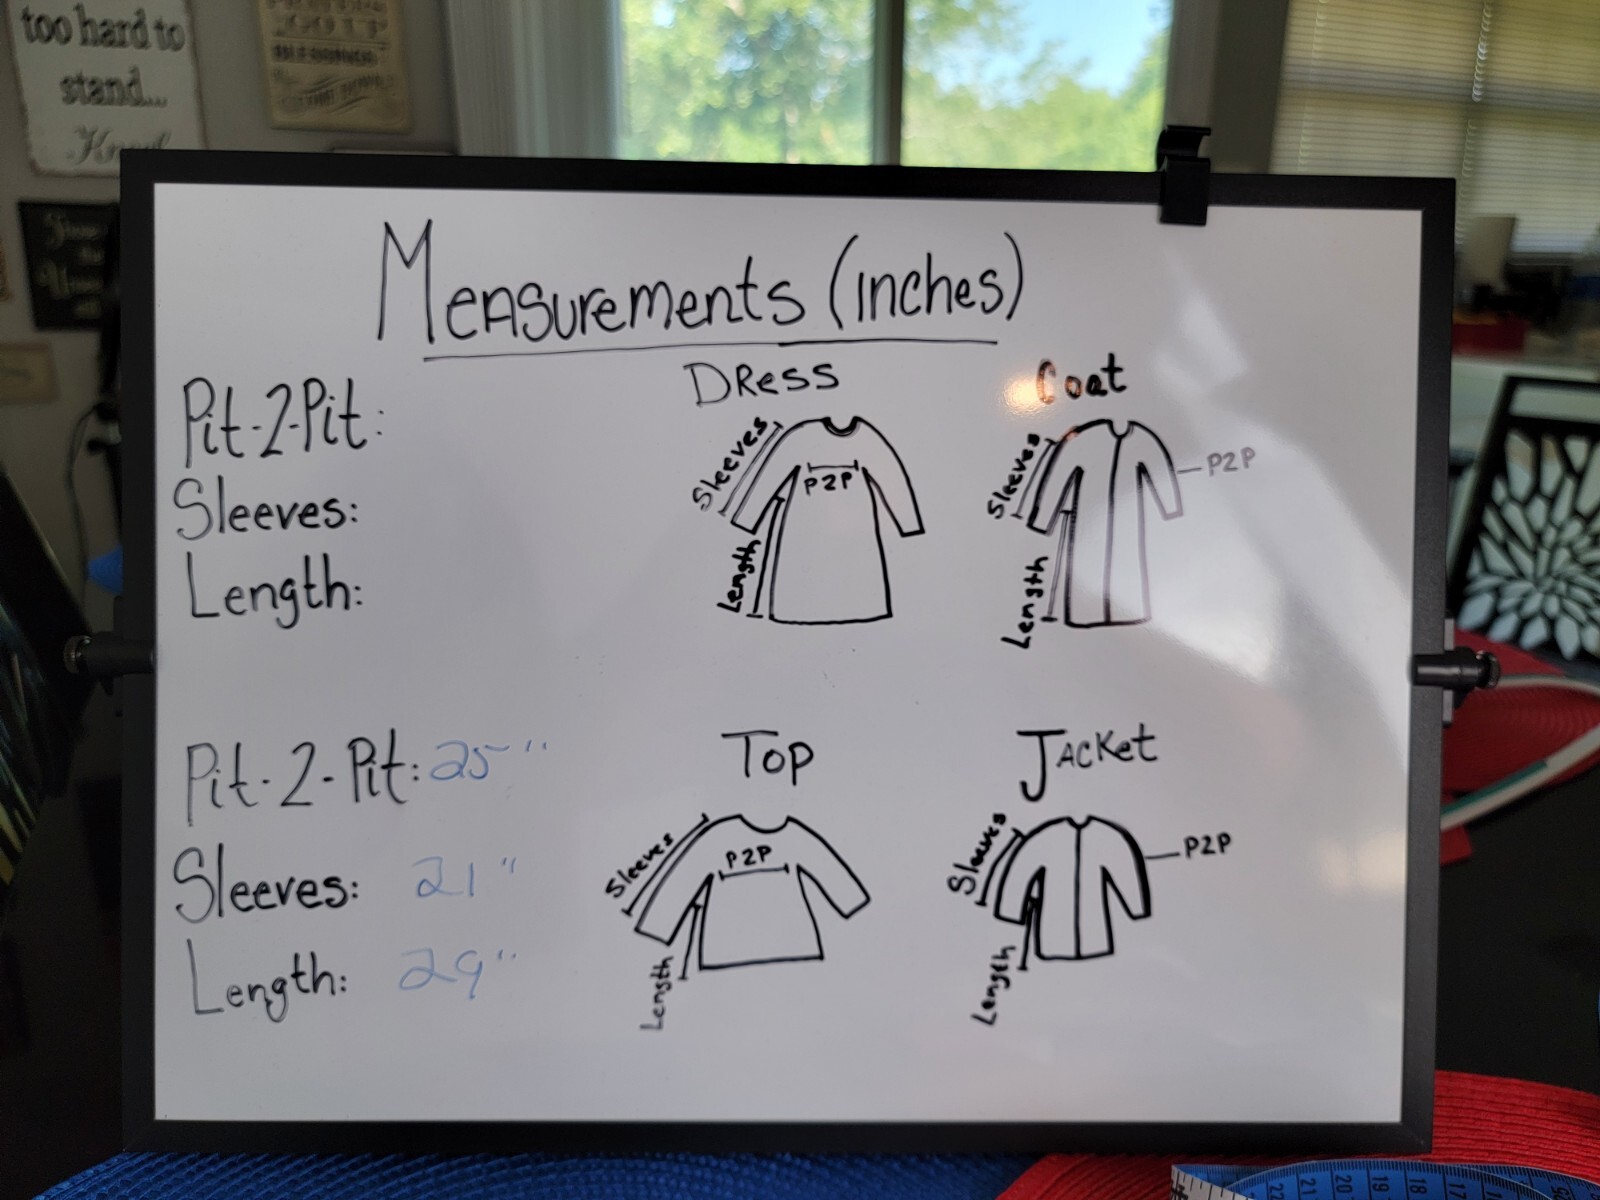 too hard to
stand...
Kneel
BLESSINGS
COME DOWN
Measurements (inches)
Pit-2-Pit:
Sleeves:
Length:
Dress
Sleeves
P2P
Length
Coat
Sleeves
P2P
Length
Pit-2-Pit: 25"
Sleeves: 21"
Length: 29"
Top
Sleeves
P2P
Length
Jacket
Sleeves
P2P
Length
22 21 20 19 18 17